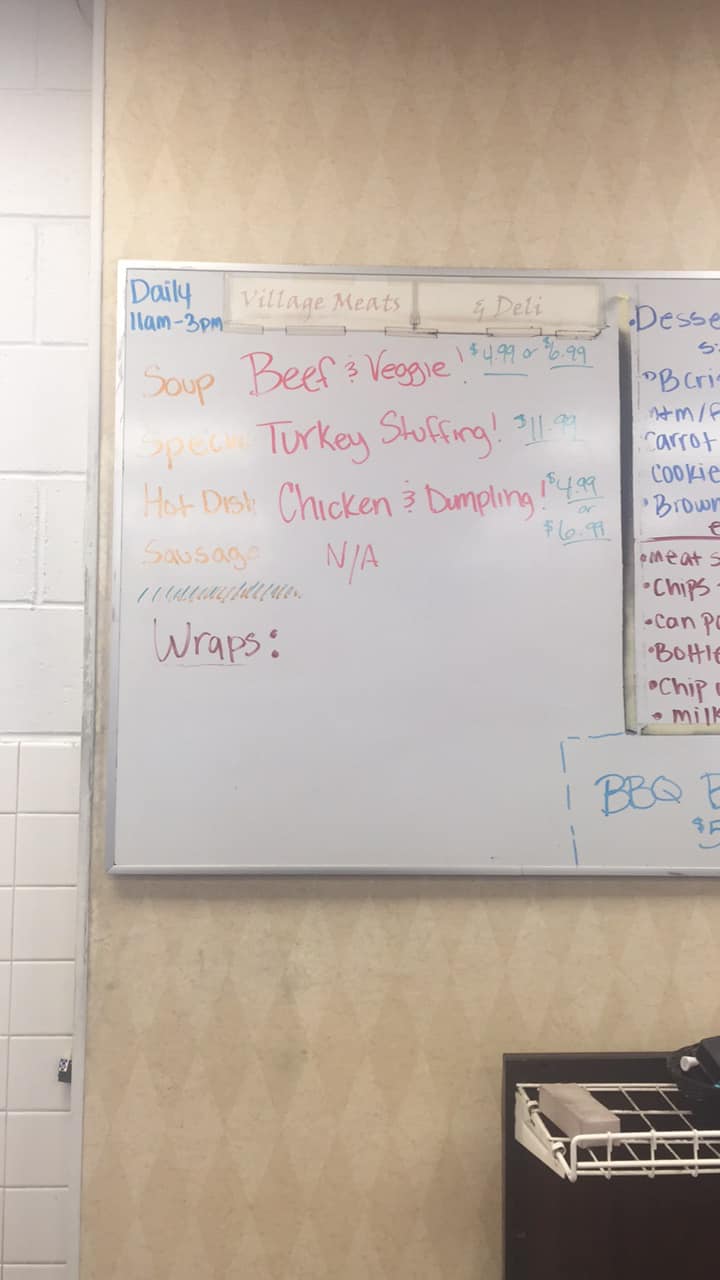 Daily
11am-3pm
Village Meats & Deli
Soup Beef & Veggie! $4.99 or $6.99
Special Turkey Stuffing! $11.99
Hot Dish Chicken & Dumpling! $4.99
or
$6.99
Sausage N/A
Wraps:
•Desse
Carrot
cookie
•Brown
•meat s
•Chips
•can po
•Bottle
•Chip
•milk
BBQ
$5